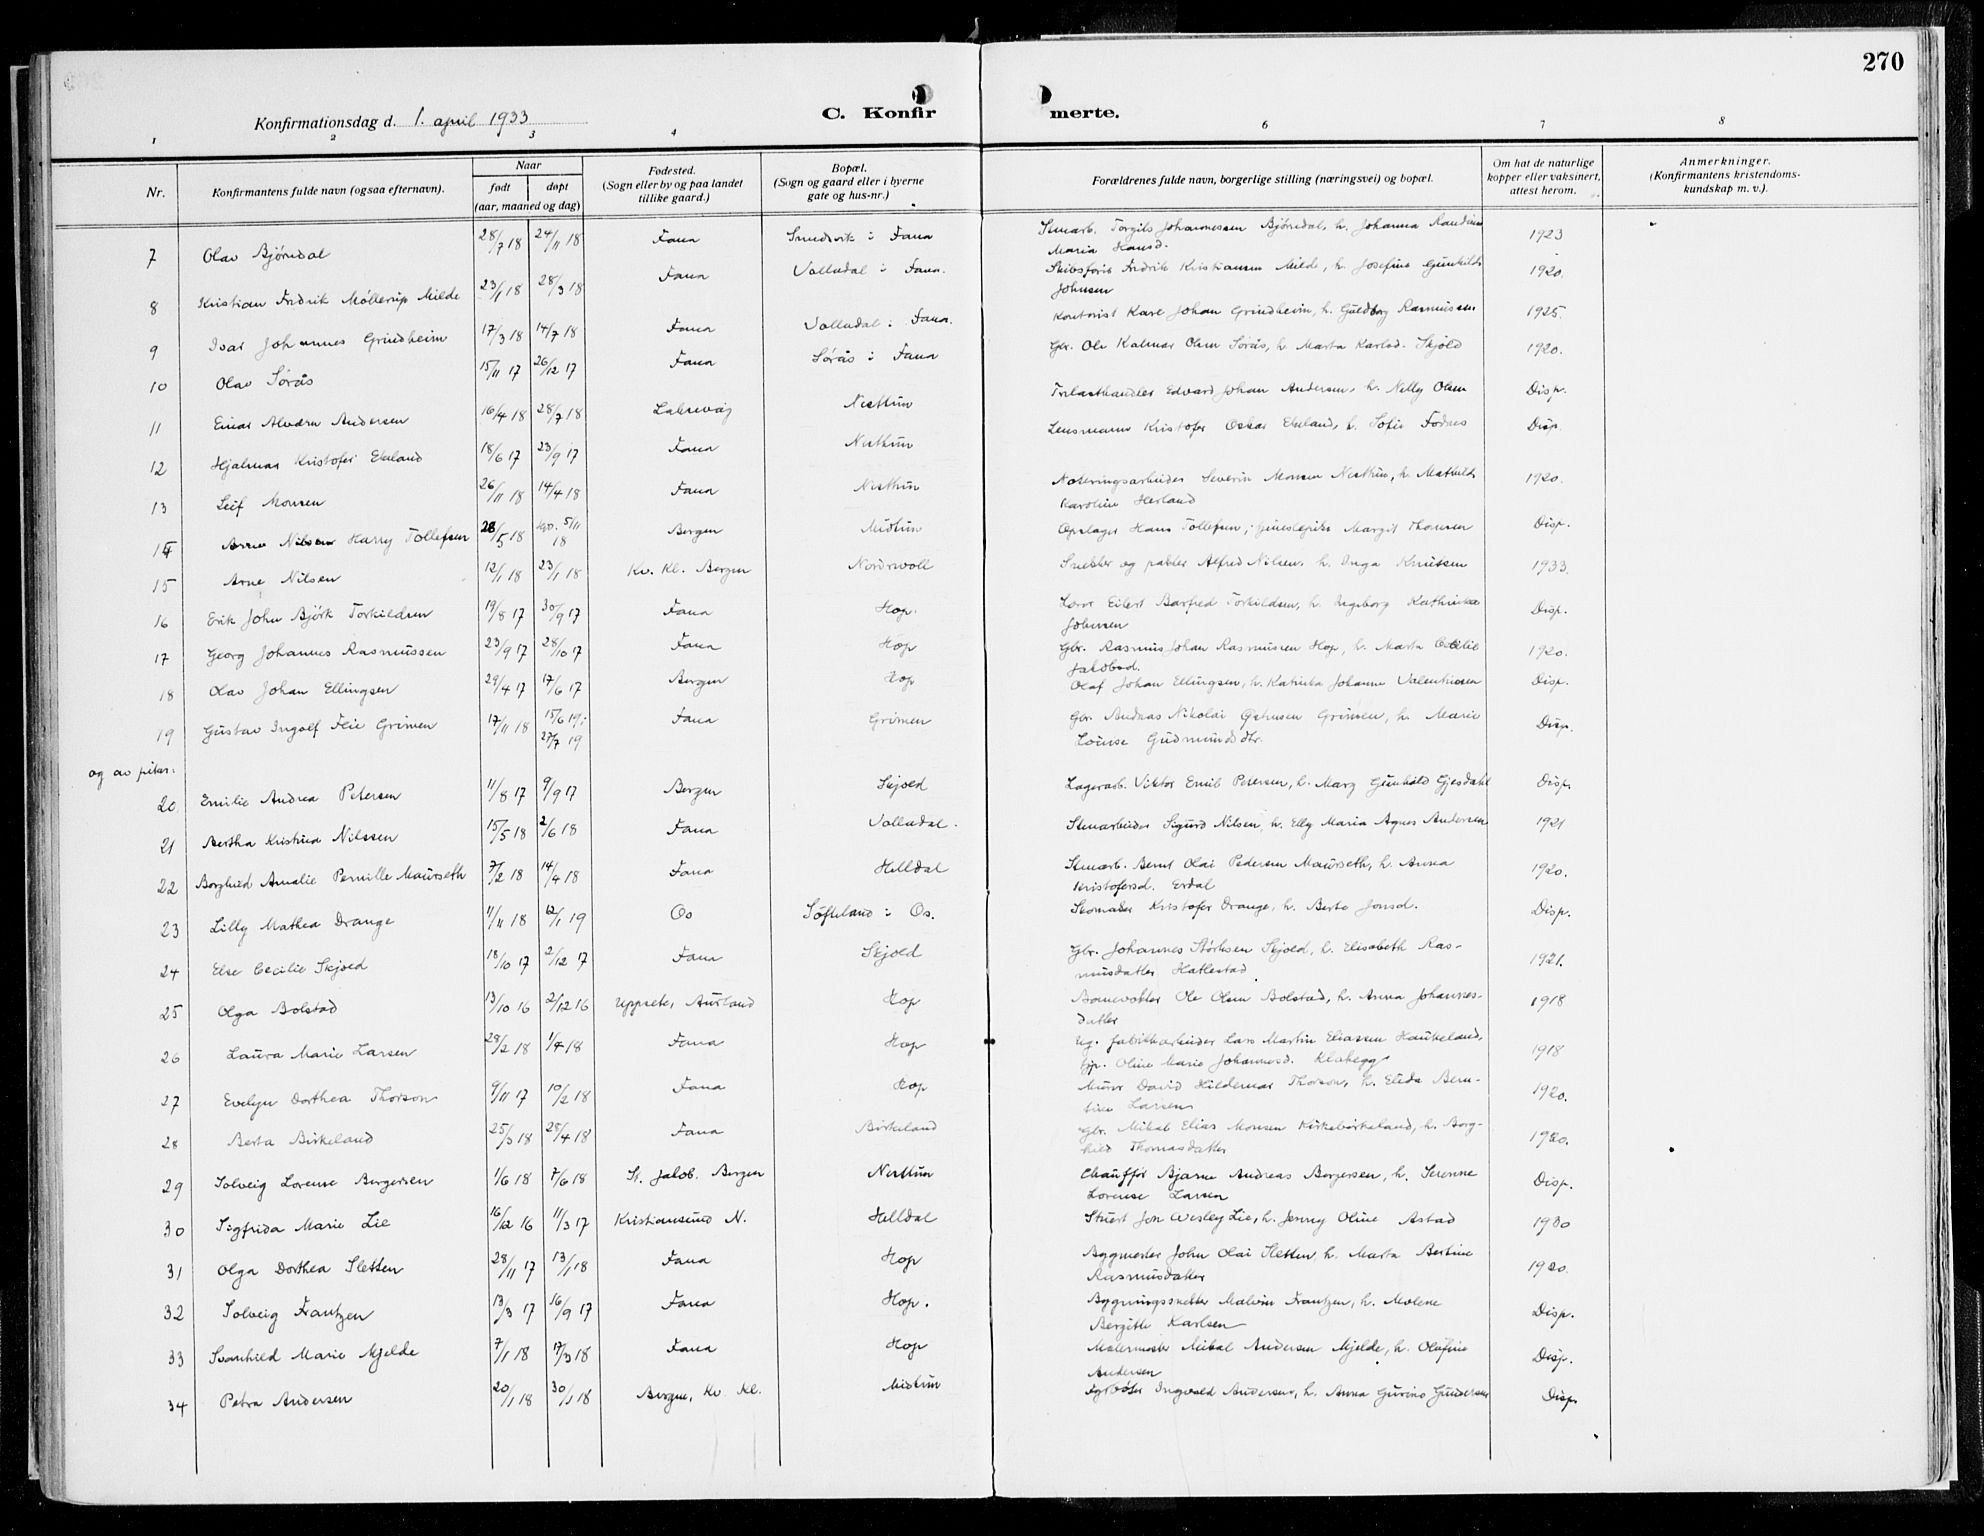 270
Konfirmationsdag d. 1. april 1933
C. Konfirmerte.
1 2 3 4 6 7 8
Nr.
Konfirmantens fulde navn (ogsaa efternavn).
Naar
født døpt
(aar, maaned og dag)
Fødested.
(Sogn eller by og paa landet
tillike gaard.)
Bopæl.
(Sogn og gaard eller i byerne
gate og hus-nr.)
Forældrenes fulde navn, borgerlige stilling (næringsvei) og bopæl.
Om hat de naturlige
kopper eller vaksinert,
attest herom.
Anmerkninger.
(Konfirmantens kristendoms-
kundskap m. v.).
7 Olav Bjørndal 28/7 18 24/11 18 Fana i Fana Stenarb. Torgils Johannessen Bjørndal, h. Johanna 1923
Maria Hansd.
8 Kristian Fredrik Møllerup Milde 23/1 18 28/3 18 Fana Valladal i Fana. Fredrik Kristiansen Milde, h. Josefine Gunhilde 1920.
Johnsen
9 Ivar Johannes Grindheim 17/3 18 14/7 18 Fana Valladal i Fana. Kontorist Kare Johan Grindheim, h. Guldborg Rasmussen 1925.
10 Olav Sørås 15/11 17 26/12 17 Fana Sørås i Fana Gbr. Ole Kalmar Olsen Sørås, h. Marta Karlsd. Skjold 1920.
11 Einar Andersen 16/4 18 28/7 18 Laksevåg Nesttun Trelasthandler Edvard Johan Andersen, h. Nelly Olsen Disp.
12 Hjalmar Kristofer Ekeland 18/6 17 23/9 17 Fana Nesttun Lensmann Kristofer Oskar Ekeland, h. Sofie Fodnes Disp.
13 Leif Monsen 26/11 18 14/4 18 Fana Nesttun Severin Monsen Nesttun, h. Mathilde 1920.
Karoline Herland
14 Harry Tollefsen 28/5 18 5/11 18 Bergen Midtun Opslager Hans Tollefsen, Margit Thomsen Disp.
15 Arne Nilsen 12/1 18 23/1 18 Kv. Kl. Bergen Nordvoll Snekker og Alfred Nilsen, h. Inga Knutsen 1933.
16 Erik John Bjørk Torkildsen 19/8 17 30/9 17 Fana Hop. Eilert Barfred Torkildsen, h. Ingeborg Kathrinka Disp.
Johnsen
17 Georg Johannes Rasmussen 23/9 17 28/10 17 Fana Hop Gbr. Rasmus Johan Rasmussen Hop, h. Marta Cecilie 1920.
Jakobsd.
18 Olav Johan Ellingsen 29/4 17 17/6 17 Bergen Hop Olaf Johan Ellingsen, h. Katrinka Johanne Valentinsen Disp.
19 Gustav Ingolf Feie Grimen 17/11 18 15/6 19; 27/7 19 Fana Grimen Gbr. Andreas Nikolai Grimen, h. Marie Disp.
Louise Gudmundsdtr.
og av piker:
20 Emilie Andrea Petersen 11/8 17 9/9 17 Bergen Skjold Lagerarb. Viktor Emil Petersen, h. Marg Gunhild Gjesdahl Disp.
21 Bertha Kristina Nilssen 15/5 18 2/6 18 Fana Valladal. Stenarbeider Sigurd Nilsen, h. Elly Maria Agnes Andersen 1921
22 Borghild Amalie Pernille Maurseth 7/2 18 14/4 18 Fana Helldal Stenarb. Bernt Olai Pedersen Maurseth, h. Anna 1920.
Kristofersd. Erdal
23 Lilly Mathea Drange 11/11 18 12/1 19 Os Søfteland i Os. Skomaker Kristofer Drange, h. Berte Jonsd. Disp.
24 Else Cecilie Skjold 18/10 17 2/12 17 Fana Skjold Gbr. Johannes Størksen Skjold, h. Elisabeth Ras- 1921.
musdatter Hatlestad
25 Olga Bolstad 13/10 16 2/12 16 Uppsete, Aurland Hop Banevokter Ole Olsen Bolstad, h. Anna Johannes- 1918
datter
26 Laura Marie Larsen 28/2 18 1/4 18 Fana Hop Ug. fabrikkarbeider Lars Martin Eliassen Haukeland, 1918
pp. Oline Marie Johannesd. Klokegg
27 Evelyn Dorthea Thorson 9/11 17 10/2 18 Fana Hop Murer David Hildemar Thorson, h. Elida Bern- 1920.
tine Larsen
28 Berta Birkeland 25/3 18 28/4 18 Fana Birkeland Gbr. Mikal Elias Monsen Kirkebirkeland, h. Borg- 1920.
hild Thomasdatter
29 Solveig Lorense Bergersen 1/6 18 7/6 18 St. Jakob. Bergen Nesttun Chauffør Bjarne Andreas Bergersen, h. Serenne Disp.
Lorense Larsen
30 Sigfrida Marie Lie 16/12 16 11/3 17 Kristiansund N. Helldal Stuert Jon Wesley Lie, h. Jenny Oline Astad 1930
31 Olga Dorthea Sletten 28/11 17 13/1 18 Fana Hop Byggmester John Olai Sletten h. Marta Bertine 1920.
Rasmusdatter
32 Solveig Frantzen 13/3 17 16/9 17 Fana Hop. Bygningssnekker Malvin Frantzen, h. Molene Disp.
Bergitte Karlsen
33 Svanhild Marie Mjelde 7/1 18 17/3 18 Fana Hop Malermester Mikal Andersen Mjelde, h. Olufine Disp.
Andersen
34 Petra Andersen 20/1 18 30/1 18 Bergen, Kv. Kl. Midtun Fyrbøter Ingvald Andersen, h. Anna Gurine Gundersen Disp.